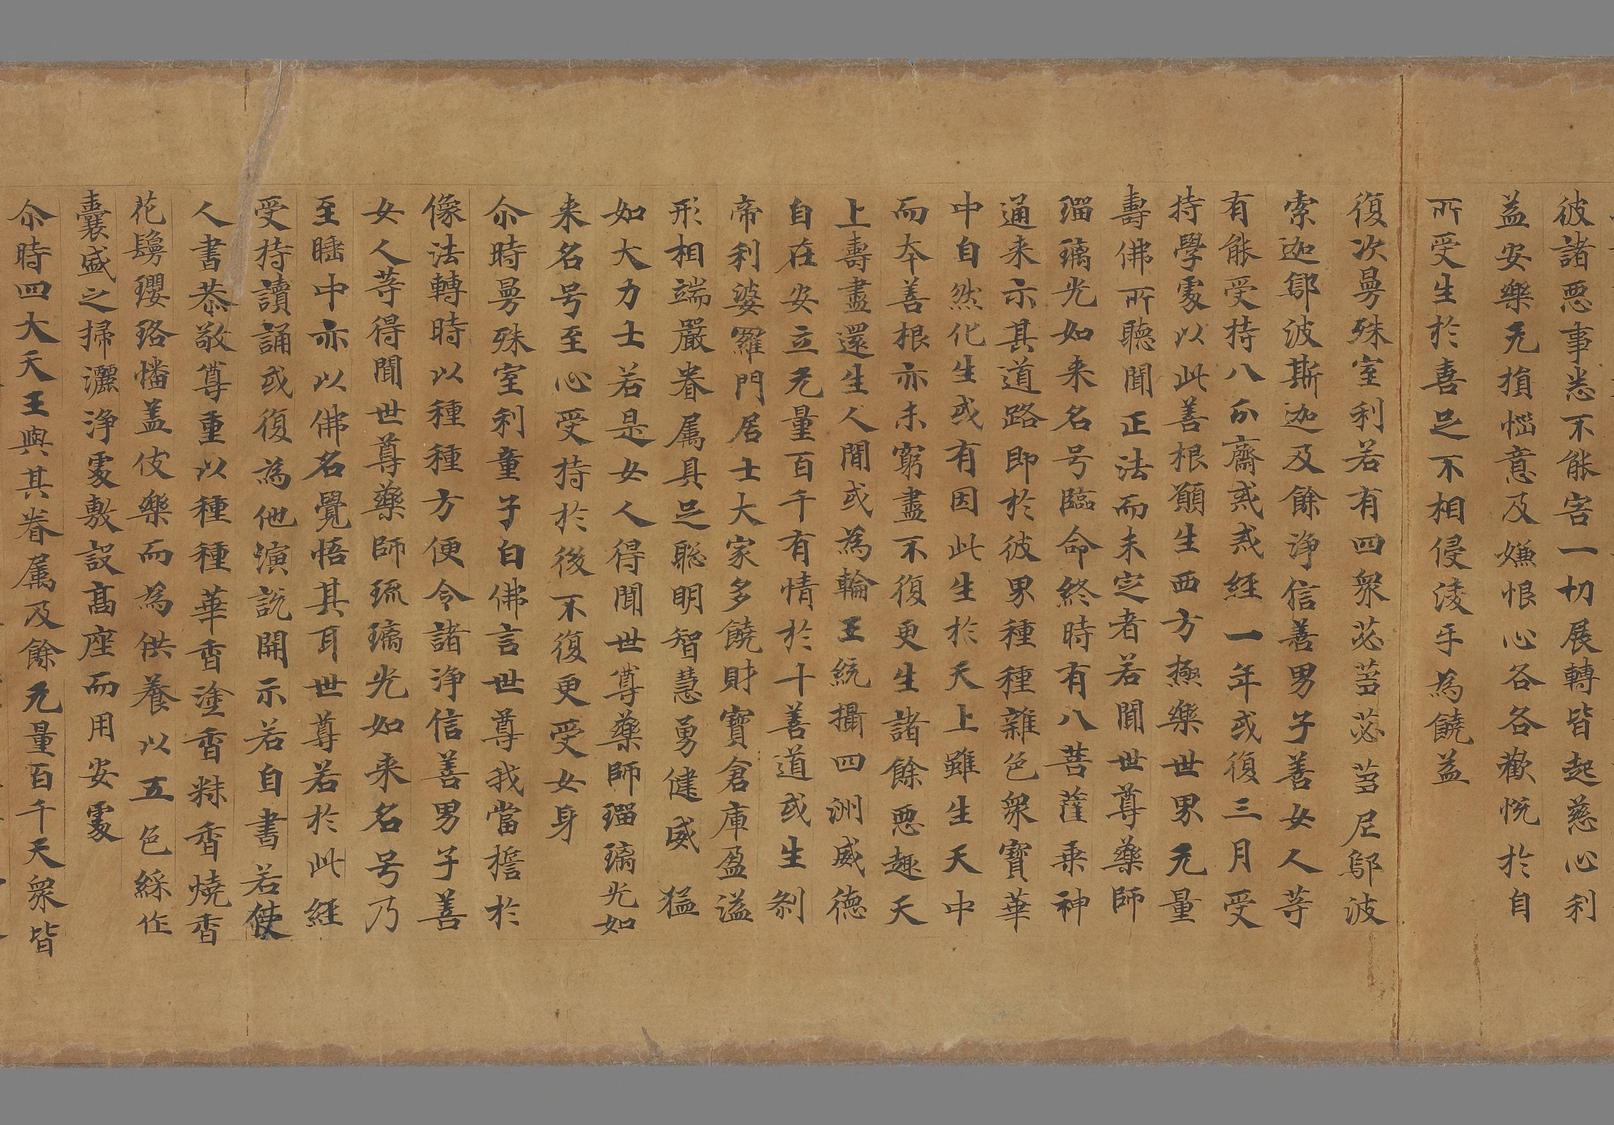 彼諸惡事悉不能害一切展轉皆起慈心利
益安樂无損惱意及嫌恨心各各歡悅於自
所受生於喜足不相侵淩乎為饒益
復次曼殊室利若有四衆苾芻苾芻尼鄔波
索迦鄔波斯迦及餘淨信善男子善女人等
有能受持八分齋或或經一年或復三月受
持學處以此善根願生西方極樂世界无量
壽佛所聽聞正法而未定者若聞世尊藥師
瑠璃光如来名号臨命終時有八菩薩乘神
通来示其道路即於彼界種種雜色衆寶華
中自然化生或有因此生於天上雖生天中
而本善根亦未窮盡不復更生諸餘惡趣天
上壽盡還生人間或為輪王統攝四洲威德
自在安立无量百千有情於十善道或生剎
帝利婆羅門居士大家多饒財寶倉庫盈溢
形相端嚴眷属具足聡明智慧勇健威猛
如大力士若是女人得聞世尊藥師瑠璃光如
来名号至心受持於後不復更受女身
尒時曼殊室利童子白佛言世尊我當誓於
像法轉時以種種方便令諸淨信善男子善
女人等得聞世尊藥師琉璃光如来名号乃
至睡中亦以佛名覺悟其耳世尊若於此經
受持讀誦或復為他演說開示若自書若使
人書恭敬尊重以種種華香塗香粖香燒香
花鬘瓔珞幡盖伎樂而為供養以五色綵作
囊盛之掃灑淨處敷設高座而用安處
尒時四大天王與其眷属及餘无量百千天衆皆